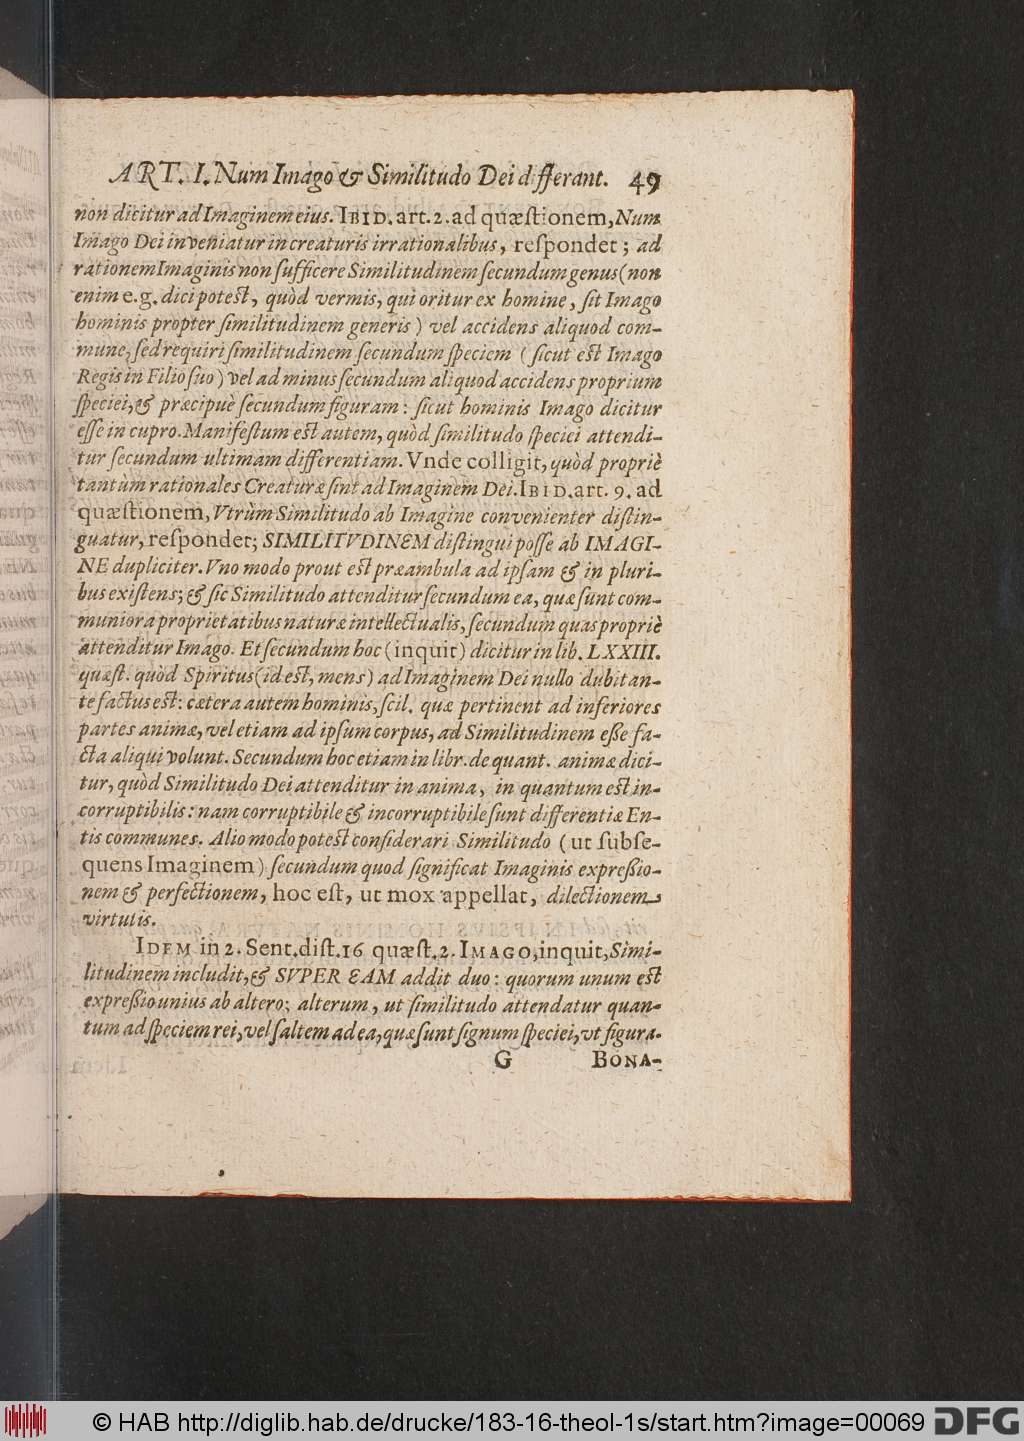 ART. I. Num Imago & Similitudo Dei differant. 49
non dicitur ad Imaginem eius. IBID. art. 2. ad quæstionem, Num
Imago Dei inveniatur in creaturis irrationalibus, reſpondet; ad
rationem Imaginis non ſufficere Similitudinem ſecundum genus (non
enim e.g. dici poteſt, quòd vermis, qui oritur ex homine, ſit Imago
hominis propter ſimilitudinem generis) vel accidens aliquod com-
mune, ſed requiri ſimilitudinem ſecundum ſpeciem (ſicut eſt Imago
Regis in Filio ſuo) vel ad minus ſecundum aliquod accidens proprium
ſpeciei, & præcipuè ſecundum figuram: ſicut hominis Imago dicitur
eſſe in cupro. Manifeſtum eſt autem, quòd ſimilitudo ſpeciei attendi-
tur ſecundum ultimam differentiam. Vnde colligit, quòd propriè
tantùm rationales Creaturæ ſint ad Imaginem Dei. IBID. art. 9. ad
quæſtionem, Vtrùm Similitudo ab Imagine convenienter diſtin-
guatur, reſpondet; SIMILITVDINEM diſtingui poſſe ab IMAGI-
NE dupliciter. Vno modo prout eſt præambula ad ipſam & in pluri-
bus exiſtens; & ſic Similitudo attenditur ſecundum ea, quæ ſunt com-
muniora proprietatibus naturæ intellectualis, ſecundum quas propriè
attenditur Imago. Et ſecundum hoc (inquit) dicitur in lib. LXXIII.
quæſt. quòd Spiritus (id eſt, mens) ad Imaginem Dei nullo dubitan-
te factus eſt: cætera autem hominis, ſcil. quæ pertinent ad inferiores
partes animæ, vel etiam ad ipſum corpus, ad Similitudinem eſſe fa-
cta aliqui volunt. Secundum hoc etiam in libr. de quant. animæ dici-
tur, quòd Similitudo Dei attenditur in anima, in quantum eſt in-
corruptibilis: nam corruptibile & incorruptibile ſunt differentiæ En-
tis communes. Alio modo poteſt conſiderari Similitudo (ut ſubſe-
quens Imaginem) ſecundum quod ſignificat Imaginis expreßio-
nem & perfectionem, hoc eſt, ut mox appellat, dilectionem
virtutis.
IDEM in 2. Sent. diſt. 16 quæſt. 2. IMAGO, inquit, Simi-
litudinem includit, & SVPER EAM addit duo: quorum unum eſt
expreßio unius ab altero; alterum, ut ſimilitudo attendatur quan-
tum ad ſpeciem rei, vel ſaltem ad ea, quæ ſunt ſignum ſpeciei, vt figura.
G BONA-
© HAB http://diglib.hab.de/drucke/183-16-theol-1s/start.htm?image=00069 DFG